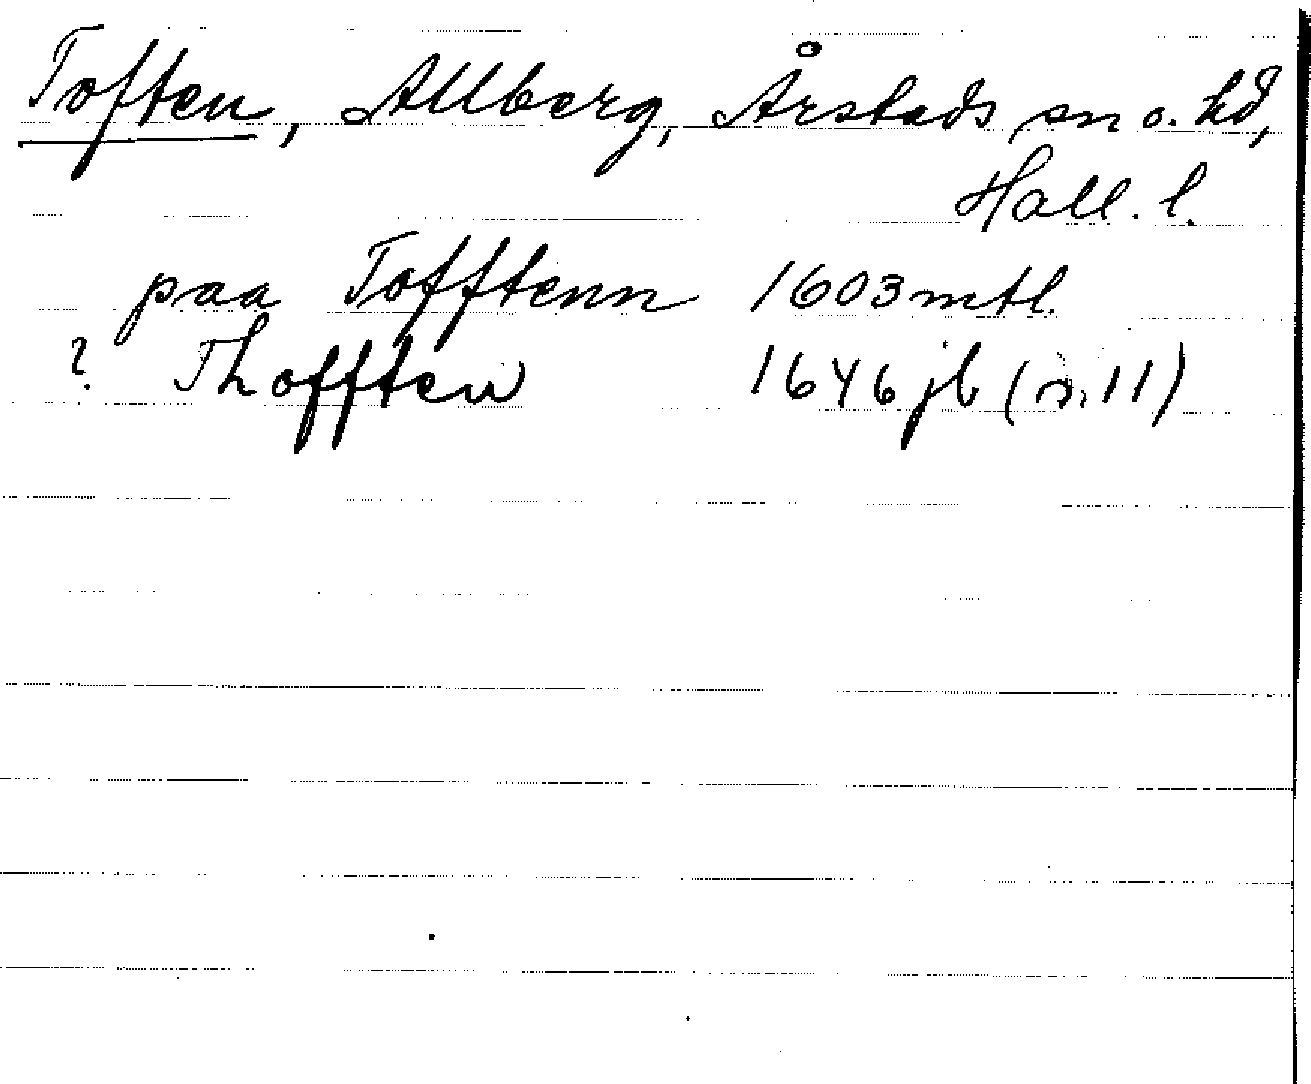 Toften, Allberg, Årstads sn o. hd,
Hall. l.
paa Tofftenn 1603 mtl.
? Thofften 1646 jb (s. 11)